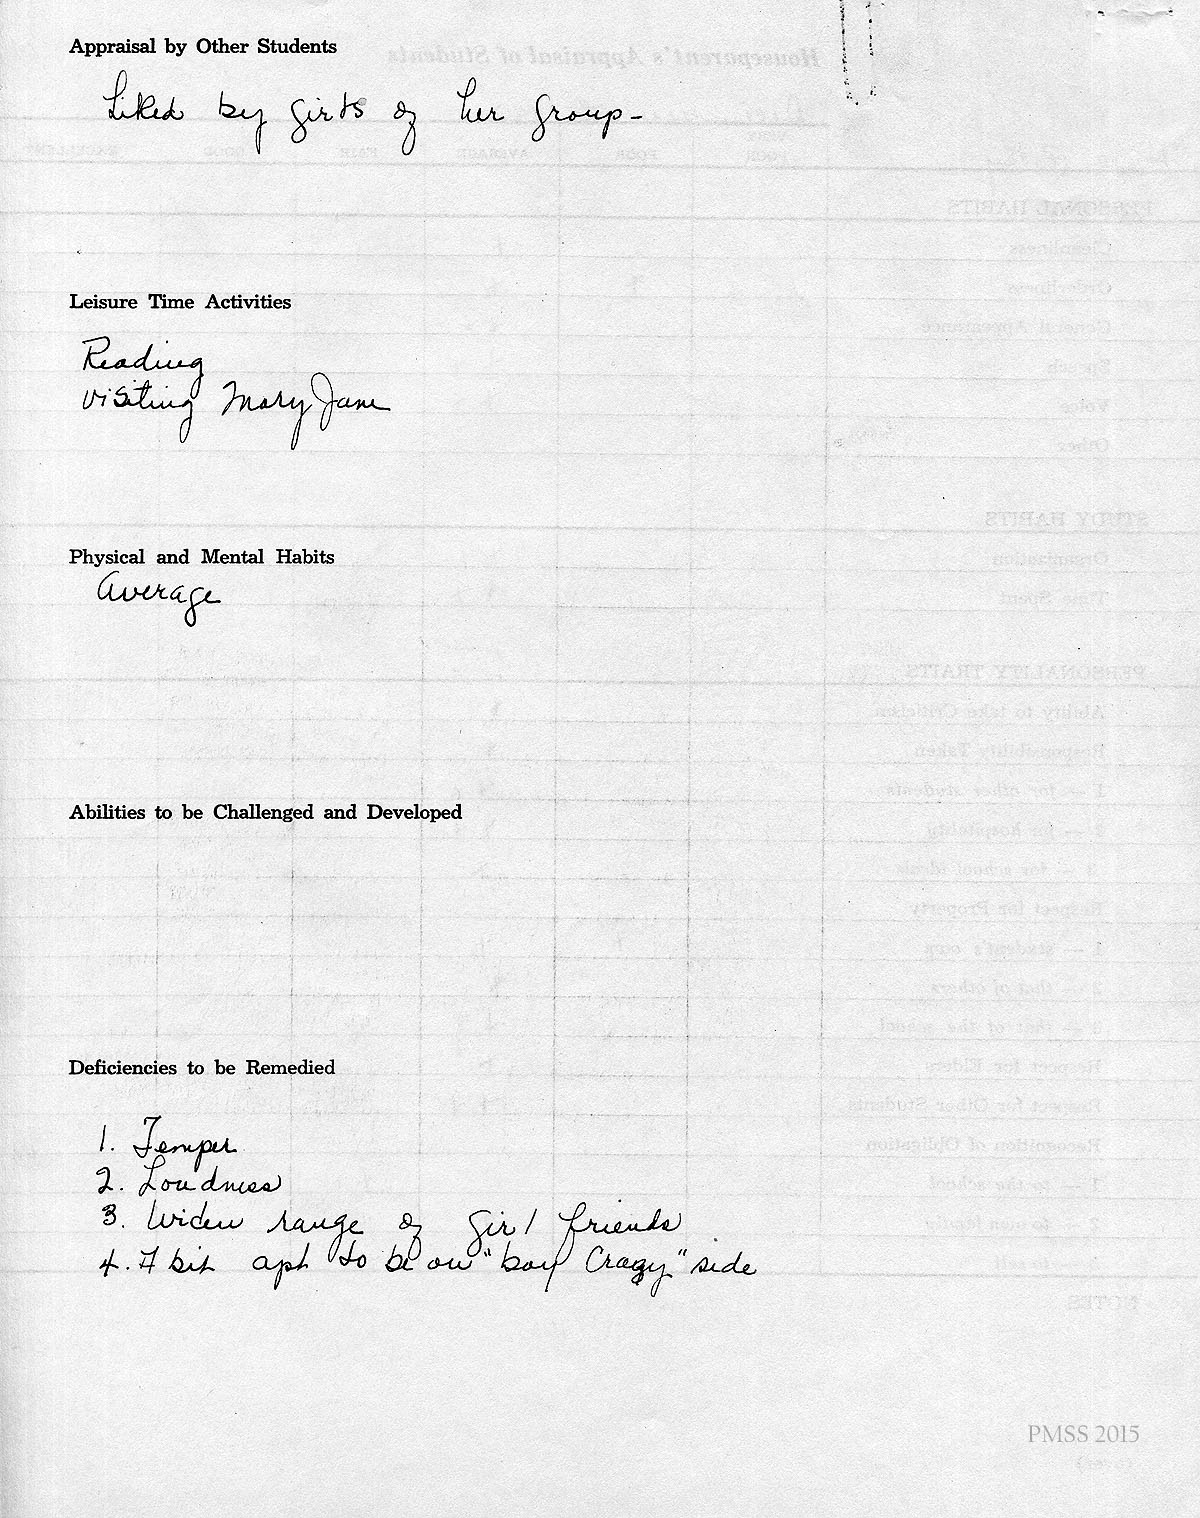 Appraisal by Other Students
Liked by girls of her group-
Leisure Time Activities
Reading
Visiting Mary Jane
Physical and Mental Habits
Average
Abilities to be Challenged and Developed
Deficiencies to be Remedied
1. Temper
2. Loudness
3. Wider range of girl friends
4. A bit apt to be on "boy Crazy" side
PMSS 2015